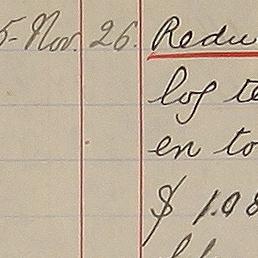 5 Nov. 26. Redu
log te
en to
$ 1.98